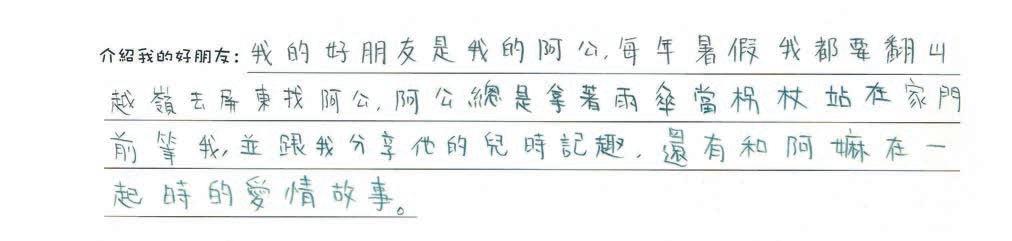 介紹我的好朋友：我的好朋友是我的阿公，每年暑假我都要翻山
越嶺去屏東找阿公，阿公總是拿著雨傘當柺杖站在家門
前等我，並跟我分享他的兒時記趣，還有和阿嫲在一
起時的愛情故事。